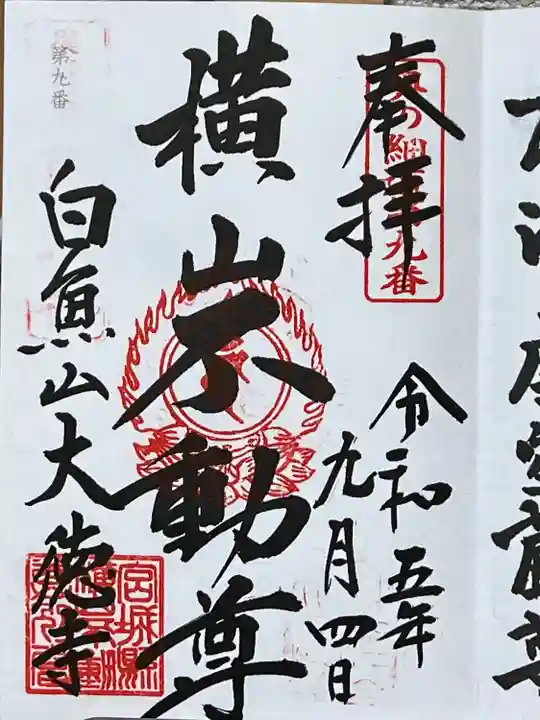 奉拝
令和五年
九月四日
横山不動尊
白魚山大徳寺
第九番
九番
宮城県